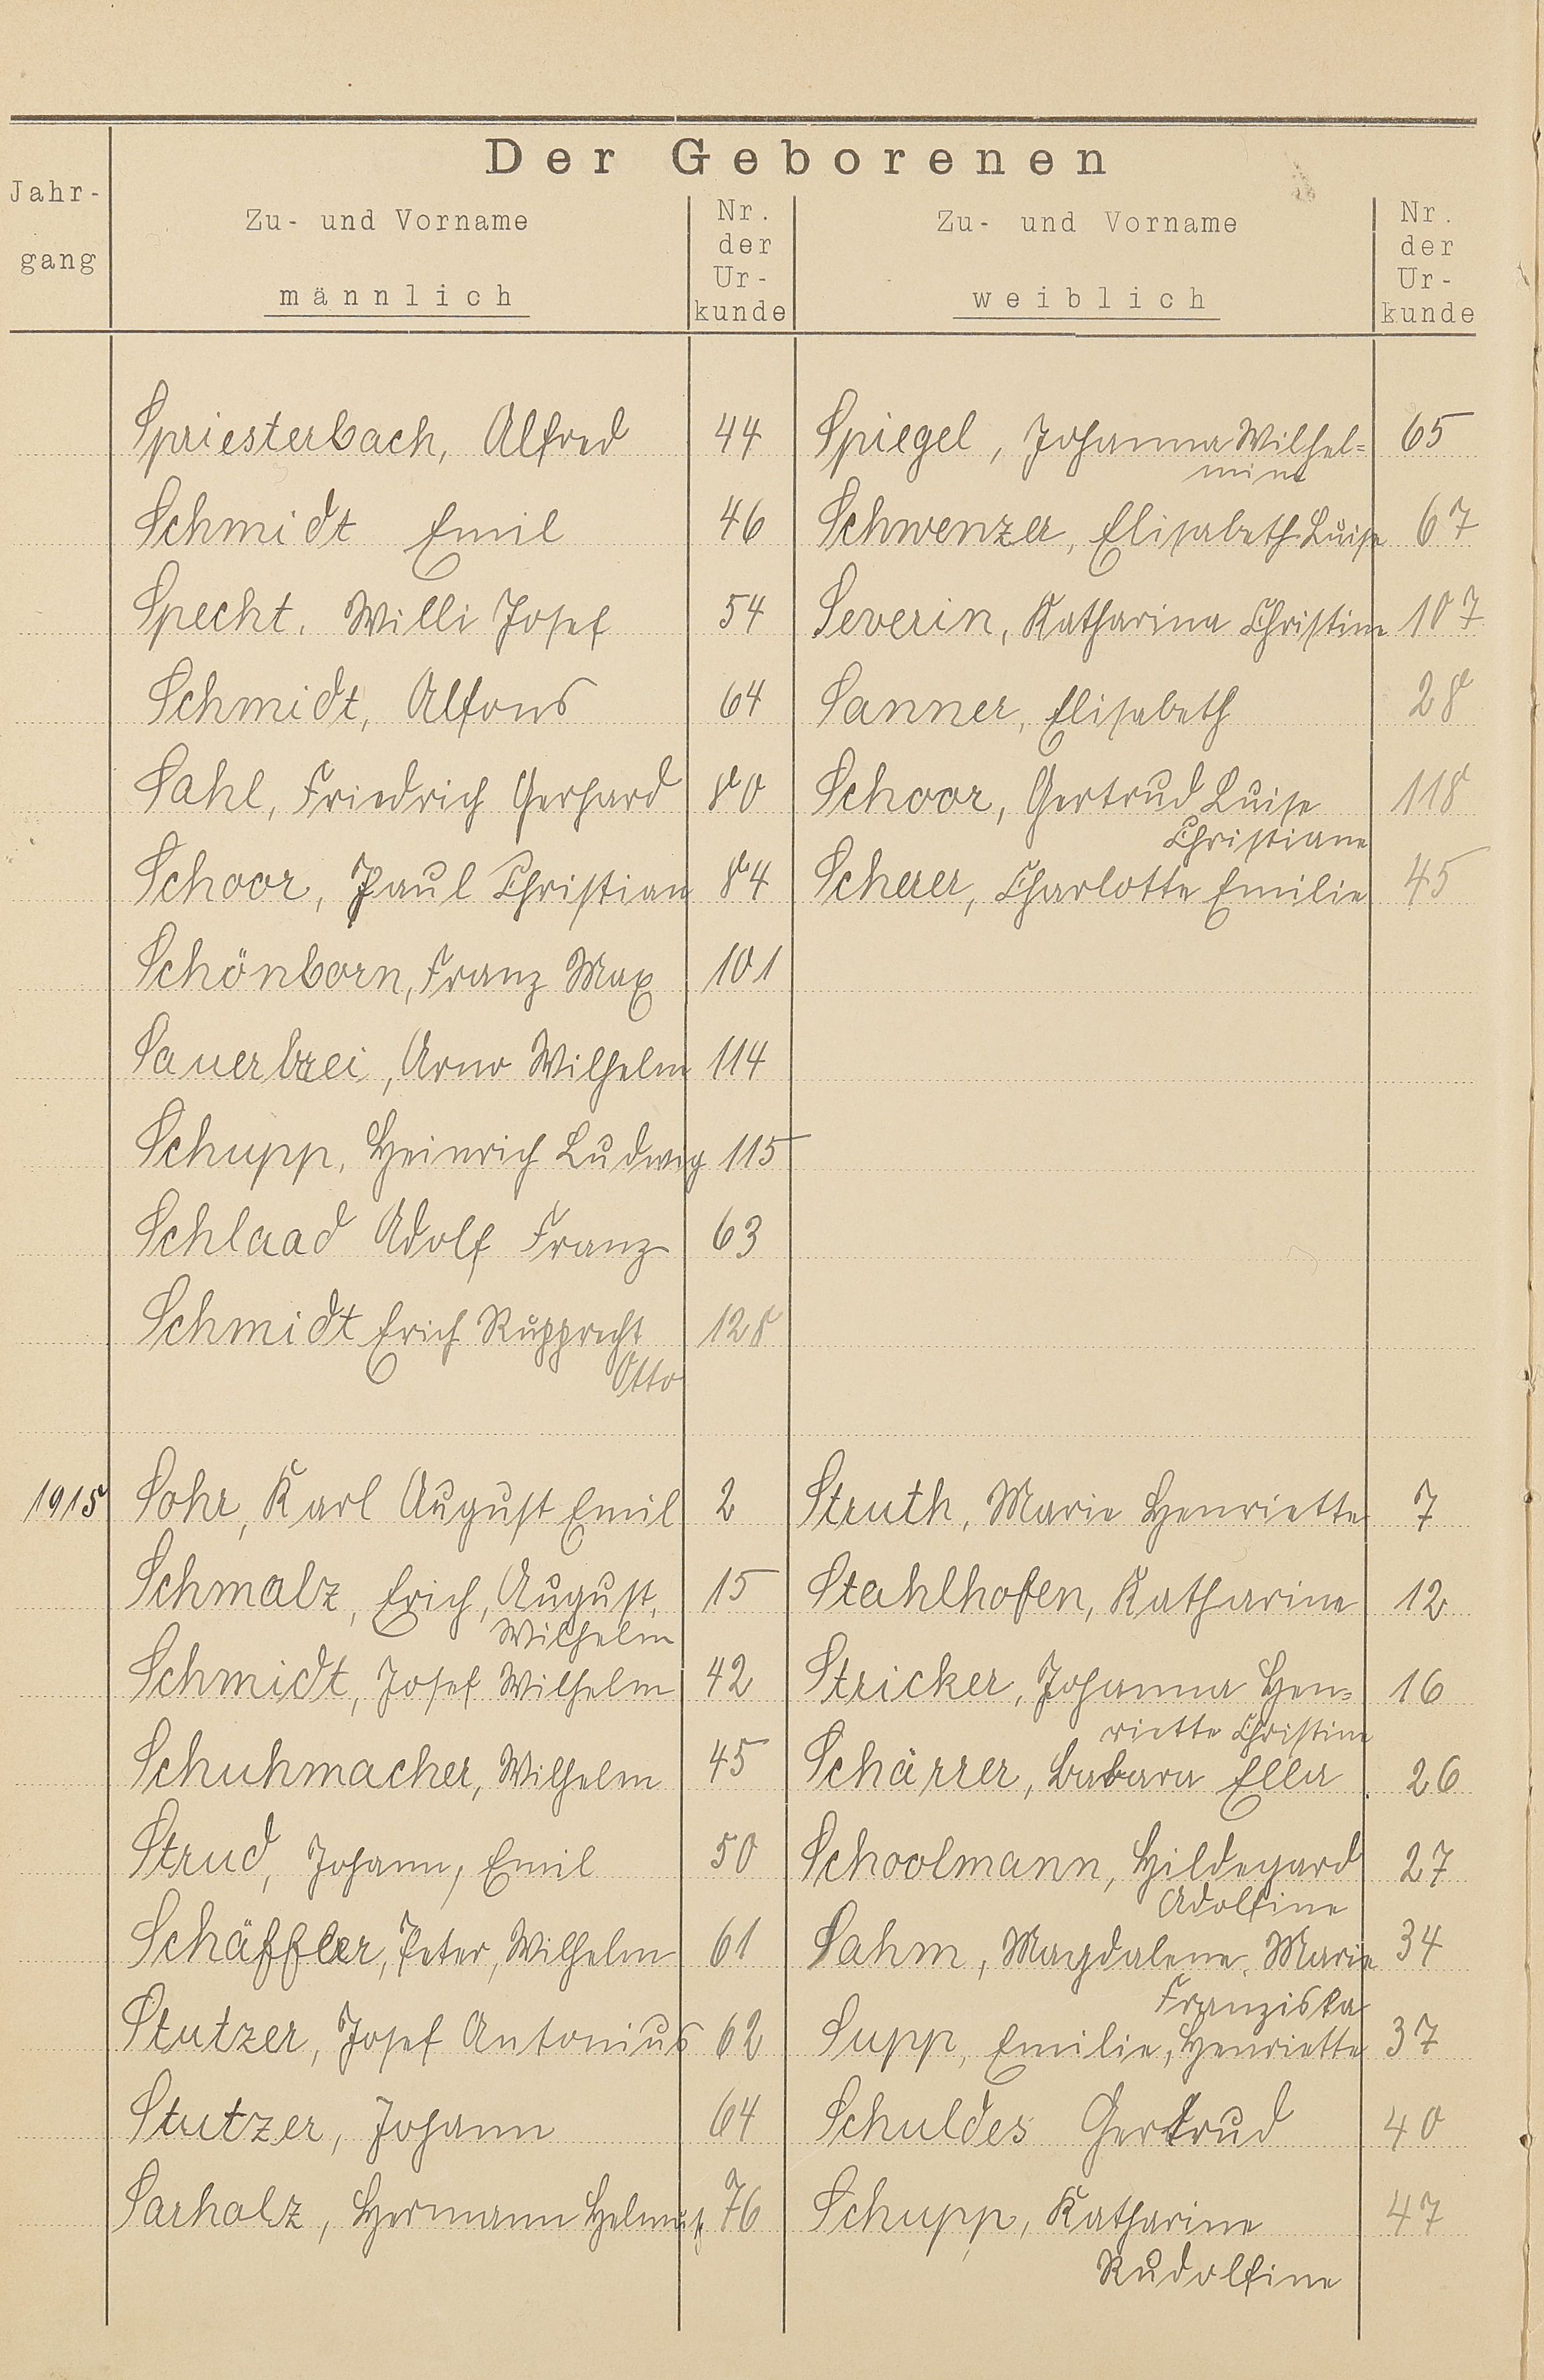 Der Geborenen
Jahr-
gang
Zu- und Vorname
männlich
Nr.
der
Ur-
kunde
Zu- und Vorname
weiblich
Nr.
der
Ur-
kunde
Spriesterbach, Alfred 44 Spiegel, Johanna Wilhel= 65
mine
Schmidt Emil 46 Schwenzer, Elisabeth Luise 67
Specht, Willi Josef 54 Severin, Katharina Christine 107
Schmidt, Alfons 64 Sanner, Elisabeth 28
Sahl, Friedrich Gerhard 80 Schoor, Gertrud Luise 118
Christiane
Schoor, Paul Christian 84 Scherer, Charlotte Emilie 45
Schönborn, Franz Max 101
Sauerbrei, Arno Wilhelm 114
Schupp, Heinrich Ludwig 115
Schlaad Adolf Franz 63
Schmidt Erich Rupprecht 128
Otto
1915 Sohr, Karl August Emil 2 Struth, Marie Henriette 7
Schmalz, Erich, August, 15 Stahlhofen, Katharine 12
Wilhelm
Schmidt, Josef Wilhelm 42 Stricker, Johanna Hen= 16
riette Christine
Schuhmacher, Wilhelm 45 Schärrer, Babara Ella 26
Strud, Johann, Emil 50 Schoolmann, Hildegard 27
Adolfine
Schäffler, Peter, Wilhelm 61 Sahm, Magdalene, Marie 34
Franziska
Stutzer, Josef Antonius 62 Supp, Emilie, Henriette 37
Stutzer, Johann 64 Schuldes Gertrud 40
Sarholz, Hermann Helmuth 76 Schupp, Katharine 47
Rudolfine